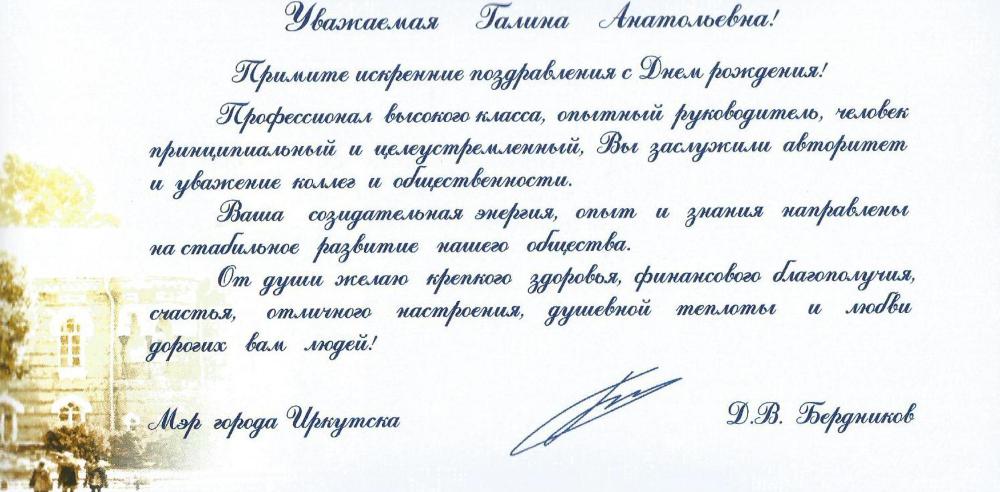 Уважаемая Галина Анатольевна!
Примите искренние поздравления с Днем рождения!
Профессионал высокого класса, опытный руководитель, человек
принципиальный и целеустремленный, Вы заслужили авторитет
и уважение коллег и общественности.
Ваша созидательная энергия, опыт и знания направлены
на стабильное развитие нашего общества.
От души желаю крепкого здоровья, финансового благополучия,
счастья, отличного настроения, душевной теплоты и любви
дорогих вам людей!
Мэр города Иркутска Д.В. Бердников